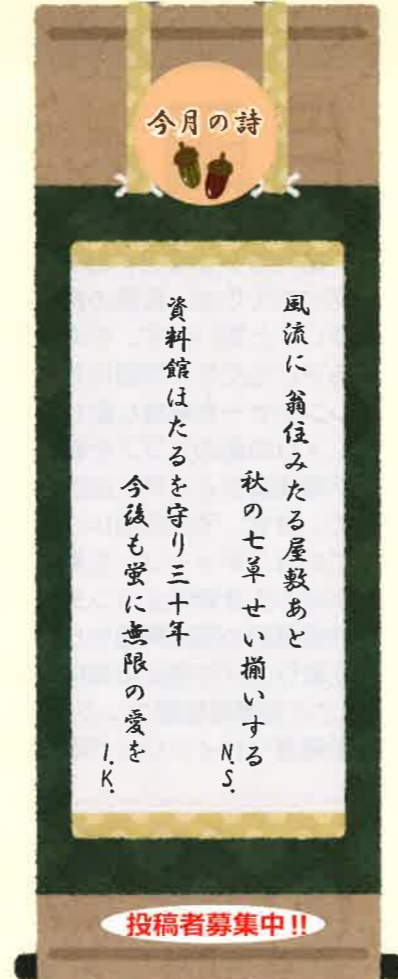 今月の詩
風流に 翁住みたる屋敷あと
秋の七草せい揃いする
N.S.
資料館ほたるを守り三十年
今後も蛍に無限の愛を
I.K.
投稿者募集中!!